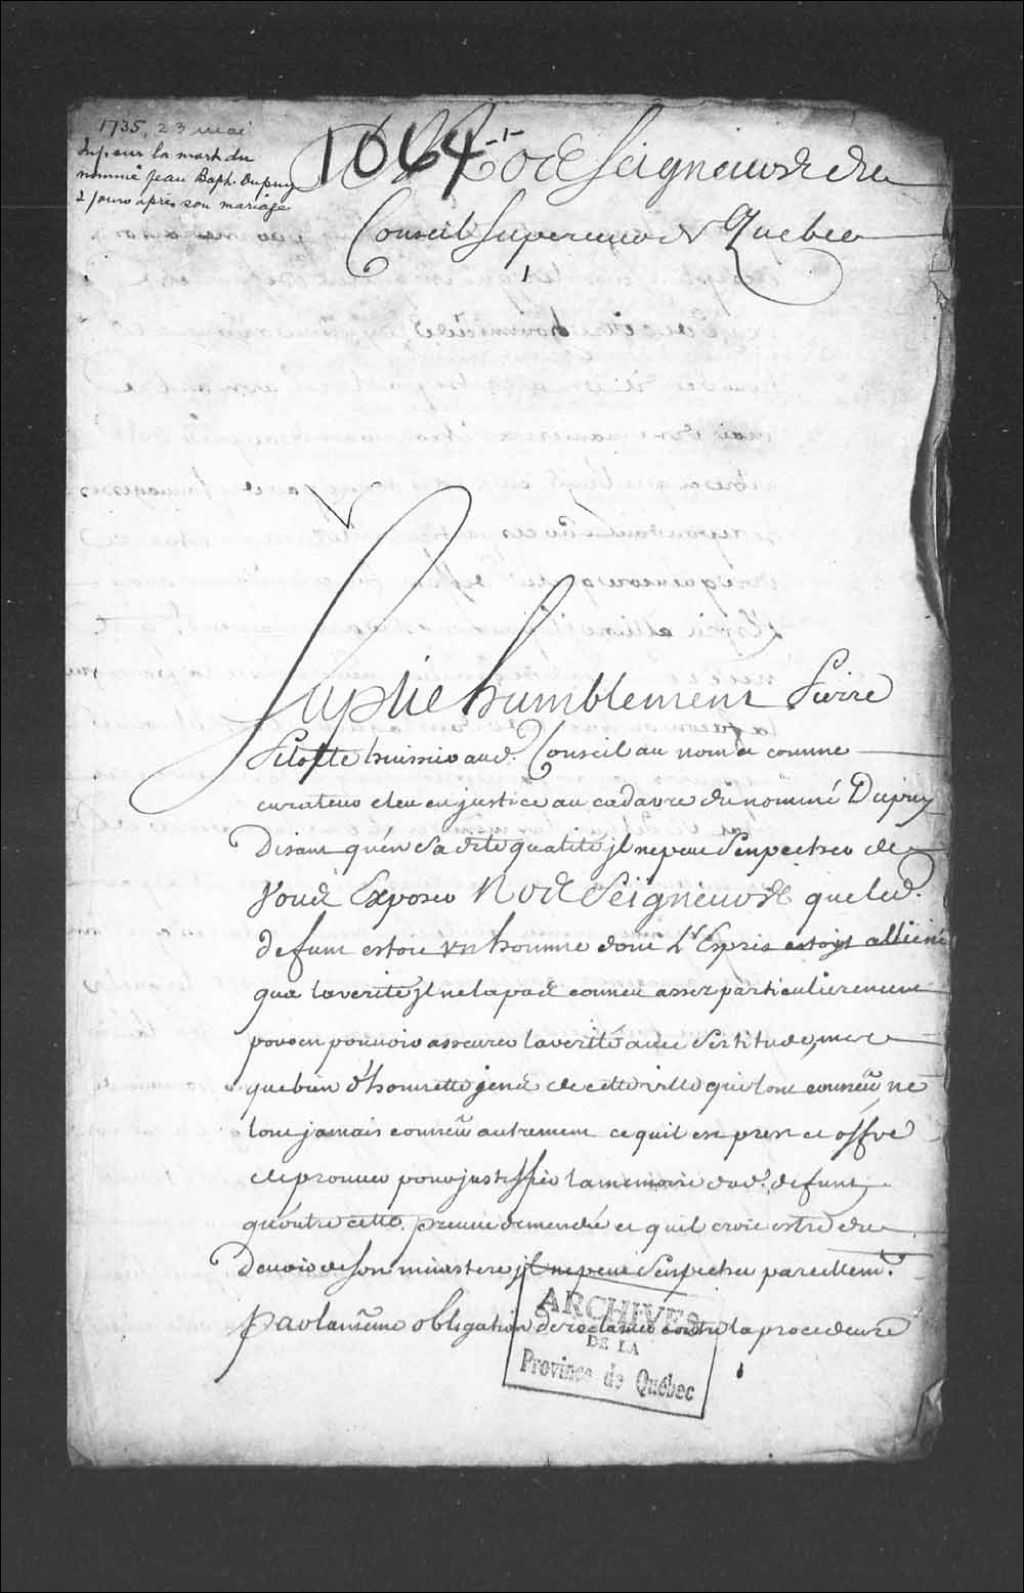 1735, 23 mai
Inf. sur la mort du
nommé Jean Bapt. Dupuy
2 jours après son mariage
1064 -1-
A Nosd Seigneurs du
Conseil Superieur de Quebec
1
Suplie humblement Pierre
Pilotte huissier aud. Conseil au nom et comme
curateur eleu en justice au cadavre du nommé Dupuy
Disant quén sa dite qualité jl ne peut Senpecher de
Vous Exposer Nosd Seigneurs que led.
defunt estoit un homme dont L'Esprit estoit alliéné
qua la verité jl ne la pas conneu assez particulierement
pour en pouvoir asseurer la verité avec Sertitude, mais
que bien d'honneste gens de cette ville qui lont conneü ne
lont jamais conneü autrement ce quil est prest et offre
de prouver pour justiffier la memoire dud. defunt,
qu'outre cette preuve demendée et quil croit estre du
Devoir de son ministere jl ne peut Senpecher pareillemt.
par la mesme obligation de reclamer contre la procedeure
ARCHIVES
DE LA
Province de Québec